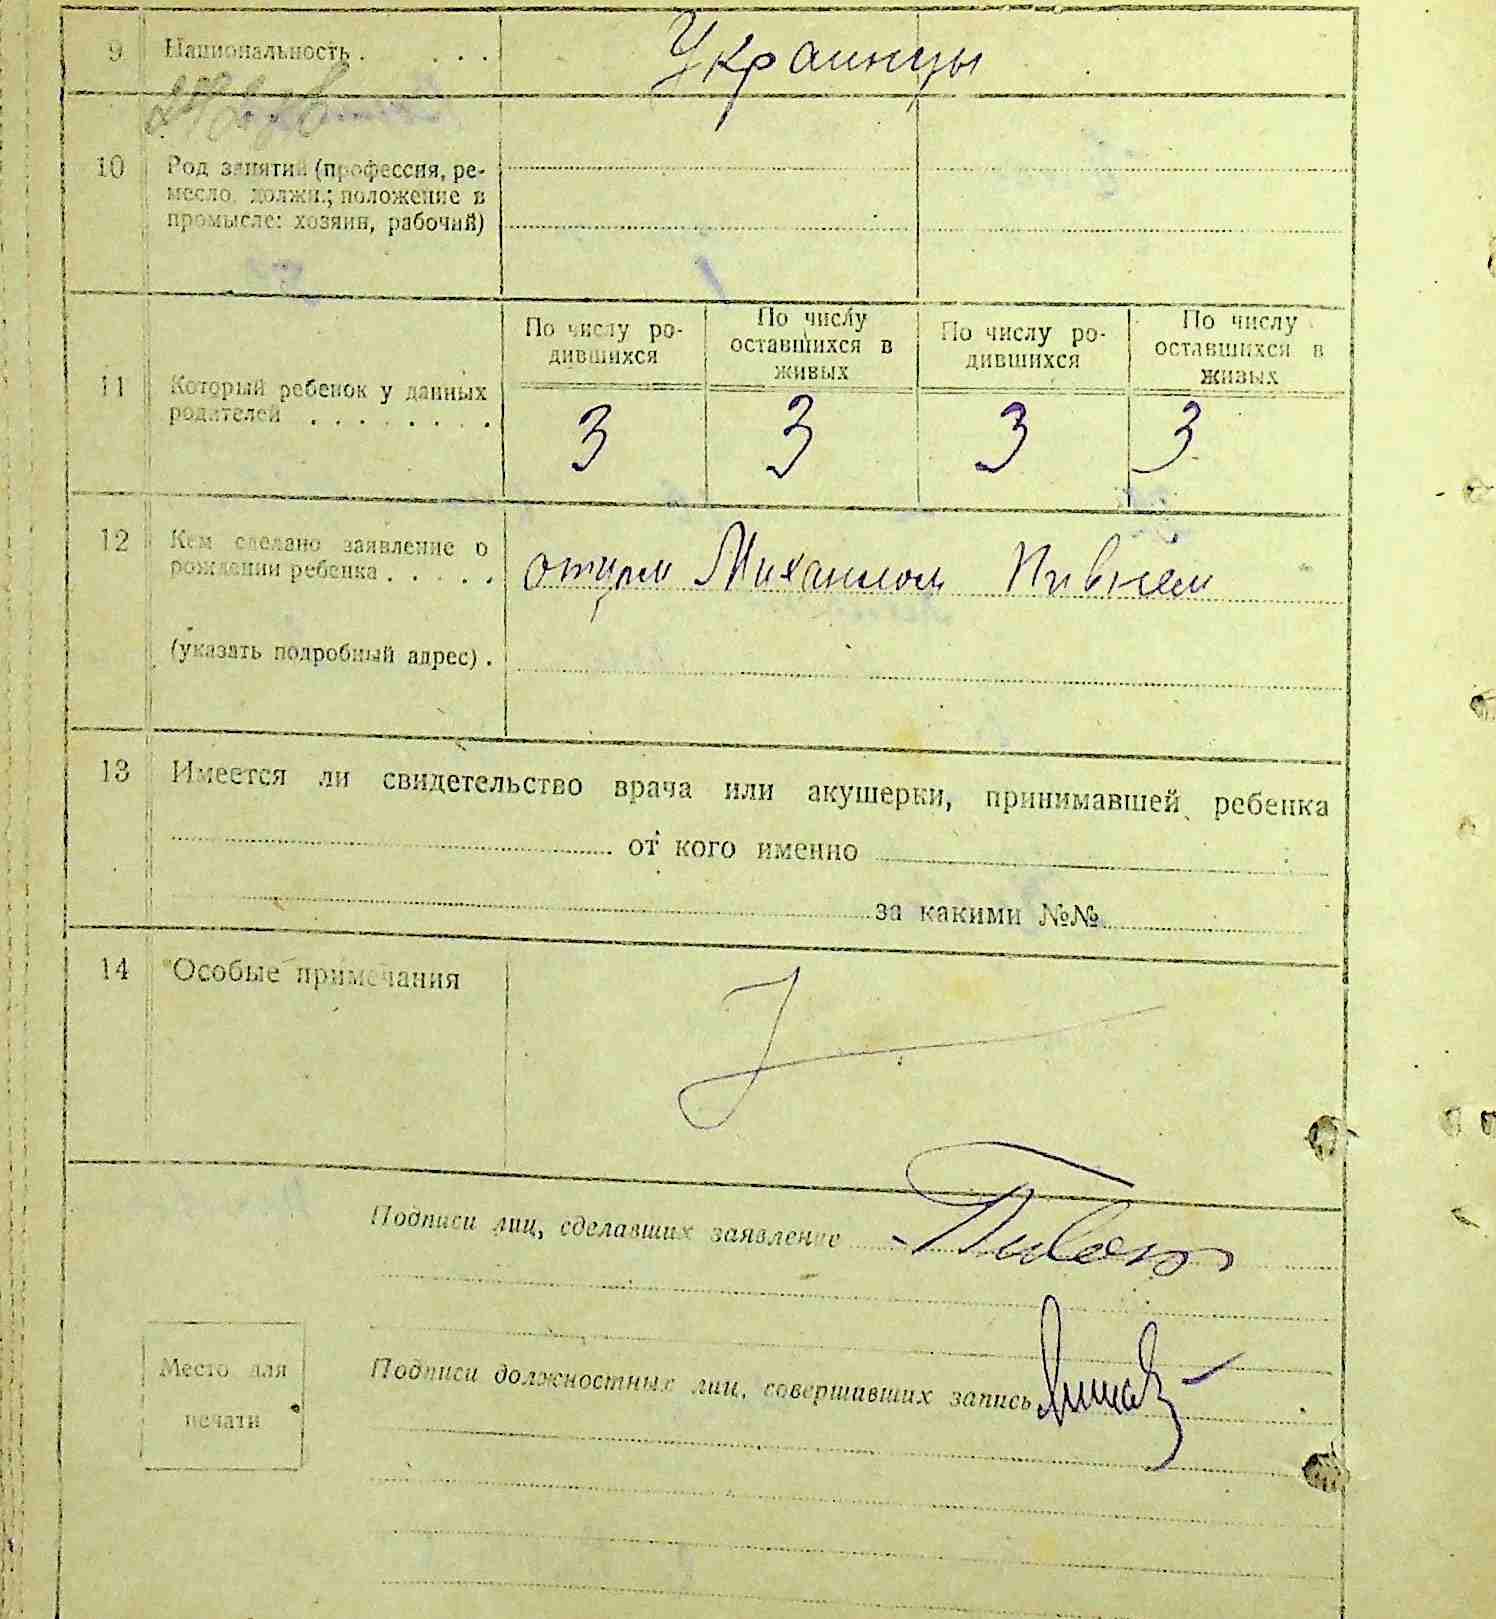 9 Национальность . . . . Украинцы
10 Род занятий (профессия, ре-
месло, должн.; положение в
промысле: хозяин, рабочий)
По числу ро- По числу По числу ро- По числу
дившихся оставшихся в дившихся оставшихся в
живых живых
11 Который ребенок у данных
родителей . . . . . . . .
3 3 3 3
12 Кем сделано заявление о
рождении ребенка . . . . . отцом Михаилом Пивнем
(указать подробный адрес) .
13 Имеется ли свидетельство врача или акушерки, принимавшей ребенка
от кого именно
за какими №№
14 Особые примечания
Подписи лиц, сделавших заявление
Место для
печати
Подписи должностных лиц, совершивших запись